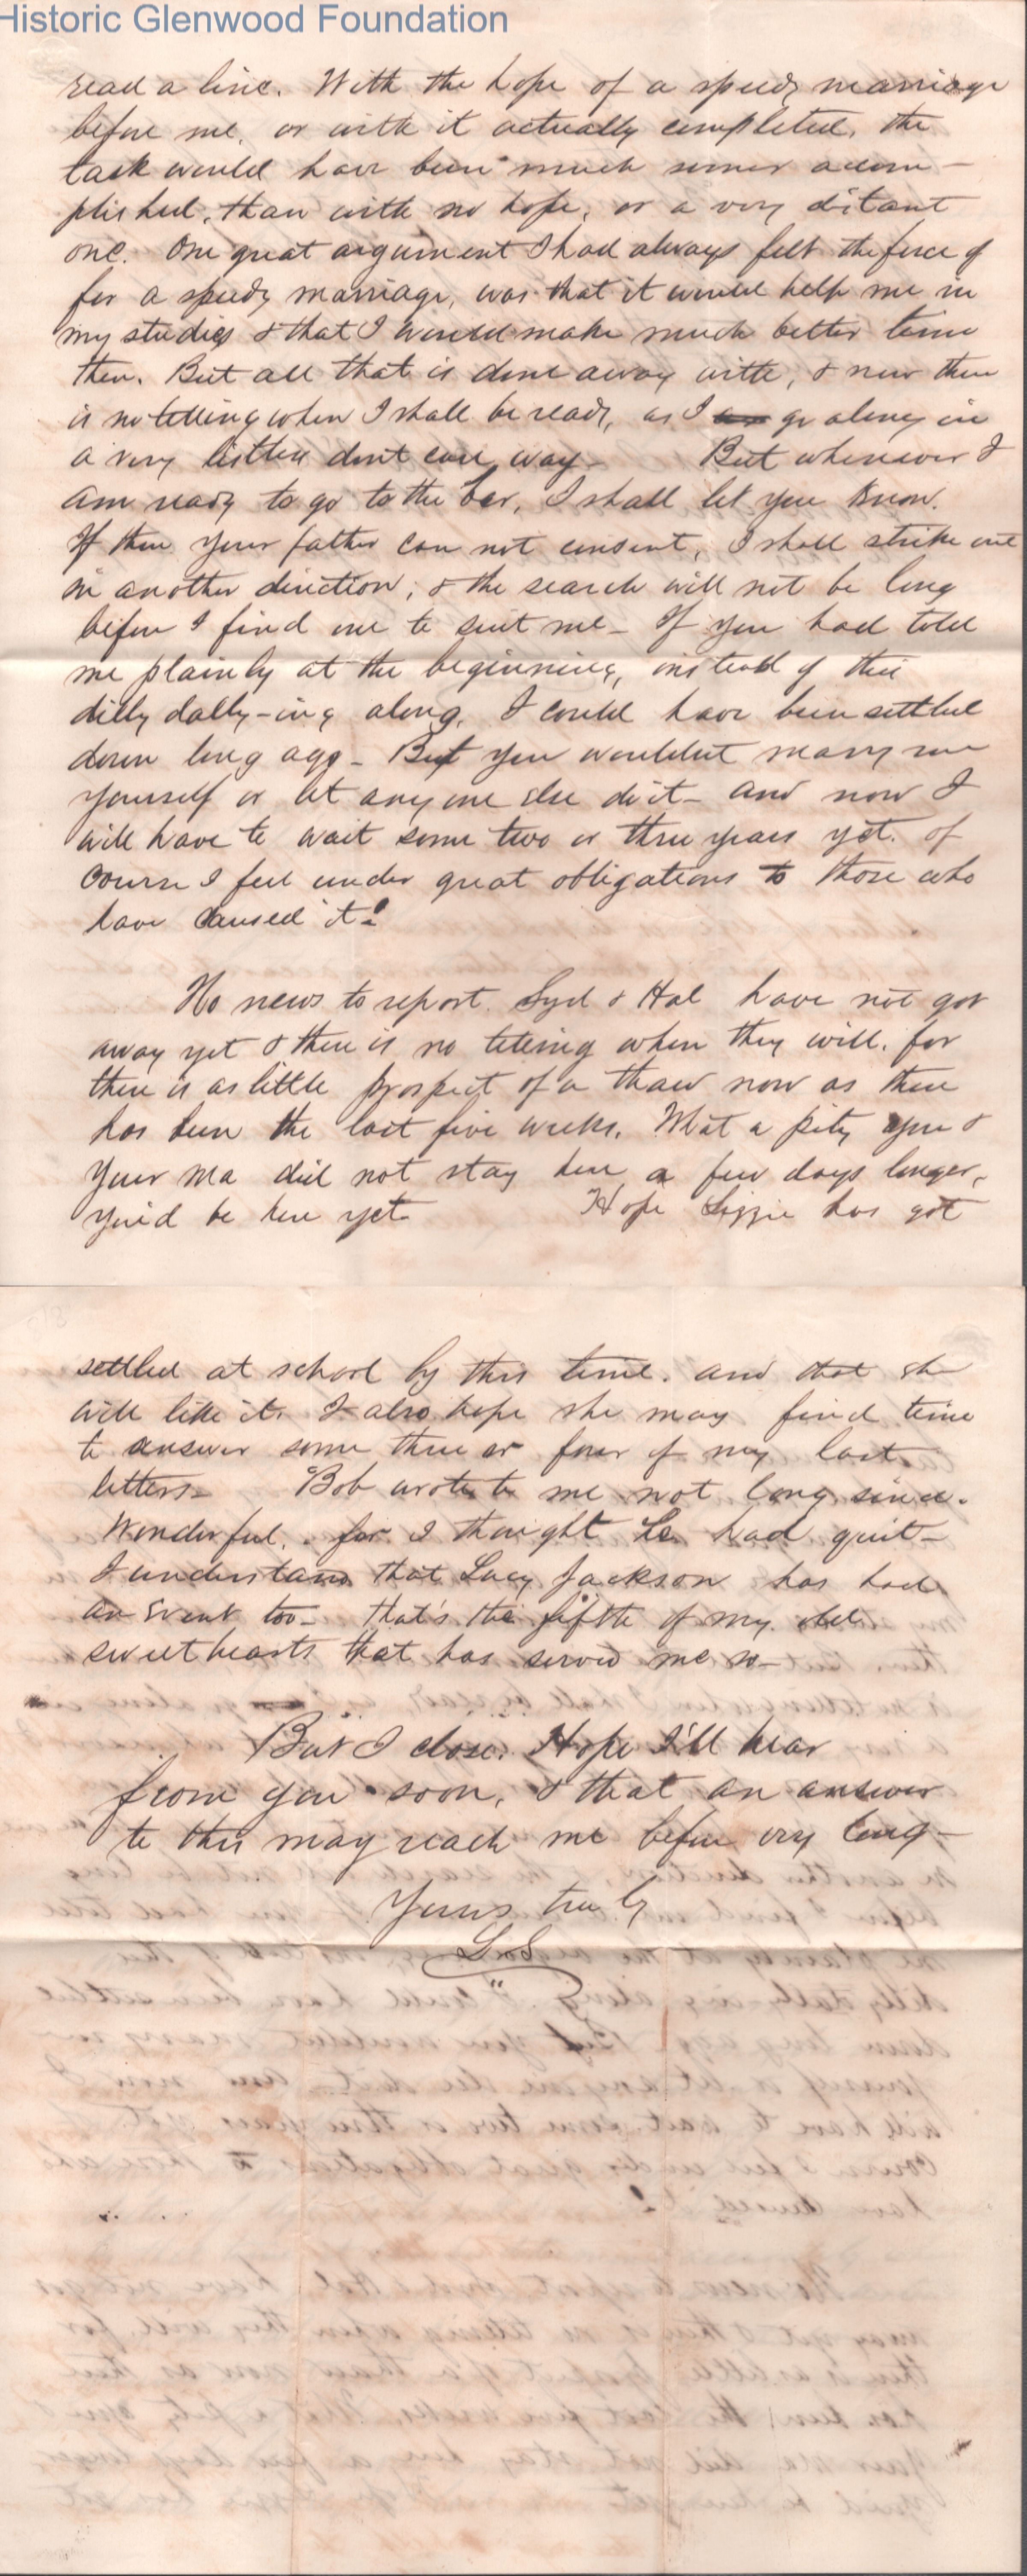 Historic Glenwood Foundation
read a line. With the hope of a speedy marriage
before me, or with it actually completed, the
task would have been much sooner accom-
plished, than with no hope, or a very distant
one. One great argument I had always felt the force of
for a speedy marriage, was that it would help me in
my studies & that I would make much better time
then. But all that is done away with, & now there
is no telling when I shall be ready, as I go along in
a very listless dont care way- But whenever I
am ready to go to the bar, I shall let you know.
If then your father can not consent, I shall strike out
in another direction, & the search will not be long
before I find one to suit me- If you had told
me plainly at the beginning, instead of this
dilly dally-ing along, I could have been settled
down long ago- But you wouldnt marry me
yourself or let any one else do it- and now I
will have to wait some two or three years yet. of
course I feel under great obligations to those who
have caused it!
No news to report. Syd & Hal have not got
away yet & there is no telling when they will, for
there is as little prospect of a thaw now as there
has been the last five weeks. What a pity you &
your Ma did not stay here a few days longer,
you'd be here yet- Hope Lizzie has got
settled at school by this time. and that she
will like it. I also hope she may find time
to answer some three or four of my last
letters- Bob wrote to me not long since.
Wonderful, for I thought he had quit-
I understand that Lucy Jackson has had
an event too- that's the fifth of my old
sweethearts that has served me so-
But I close. Hope I'll hear
from you soon, & that an answer
to this may reach me before very long-
Yours truly